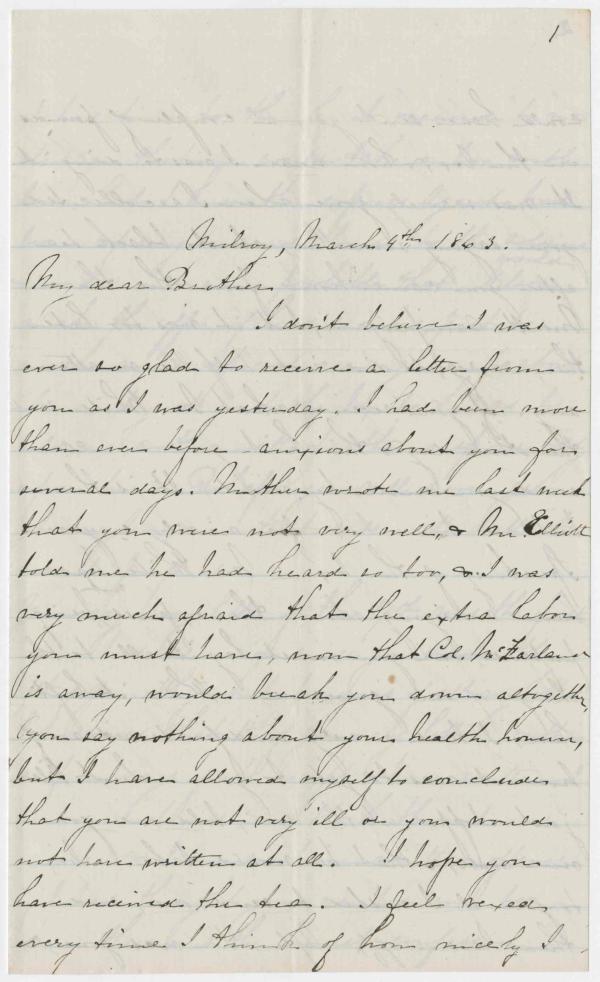 1
Milroy, March 9th 1863.
My dear Brother
I don't believe I was
ever so glad to receive a letter from
you as I was yesterday. I had been more
than ever before anxious about you for
several days. Mother wrote me last week
that you were not very well, & Mr. Elliott
told me he had heard so too, & I was
very much afraid that the extra labor
you must have, now that Col. McFarland
is away, would break you down altogether,
you say nothing about your health however,
but I have allowed myself to conclude
that you are not very ill or you would
not have written at all. I hope you
have received the tea. I feel vexed
every time I think of how nicely I